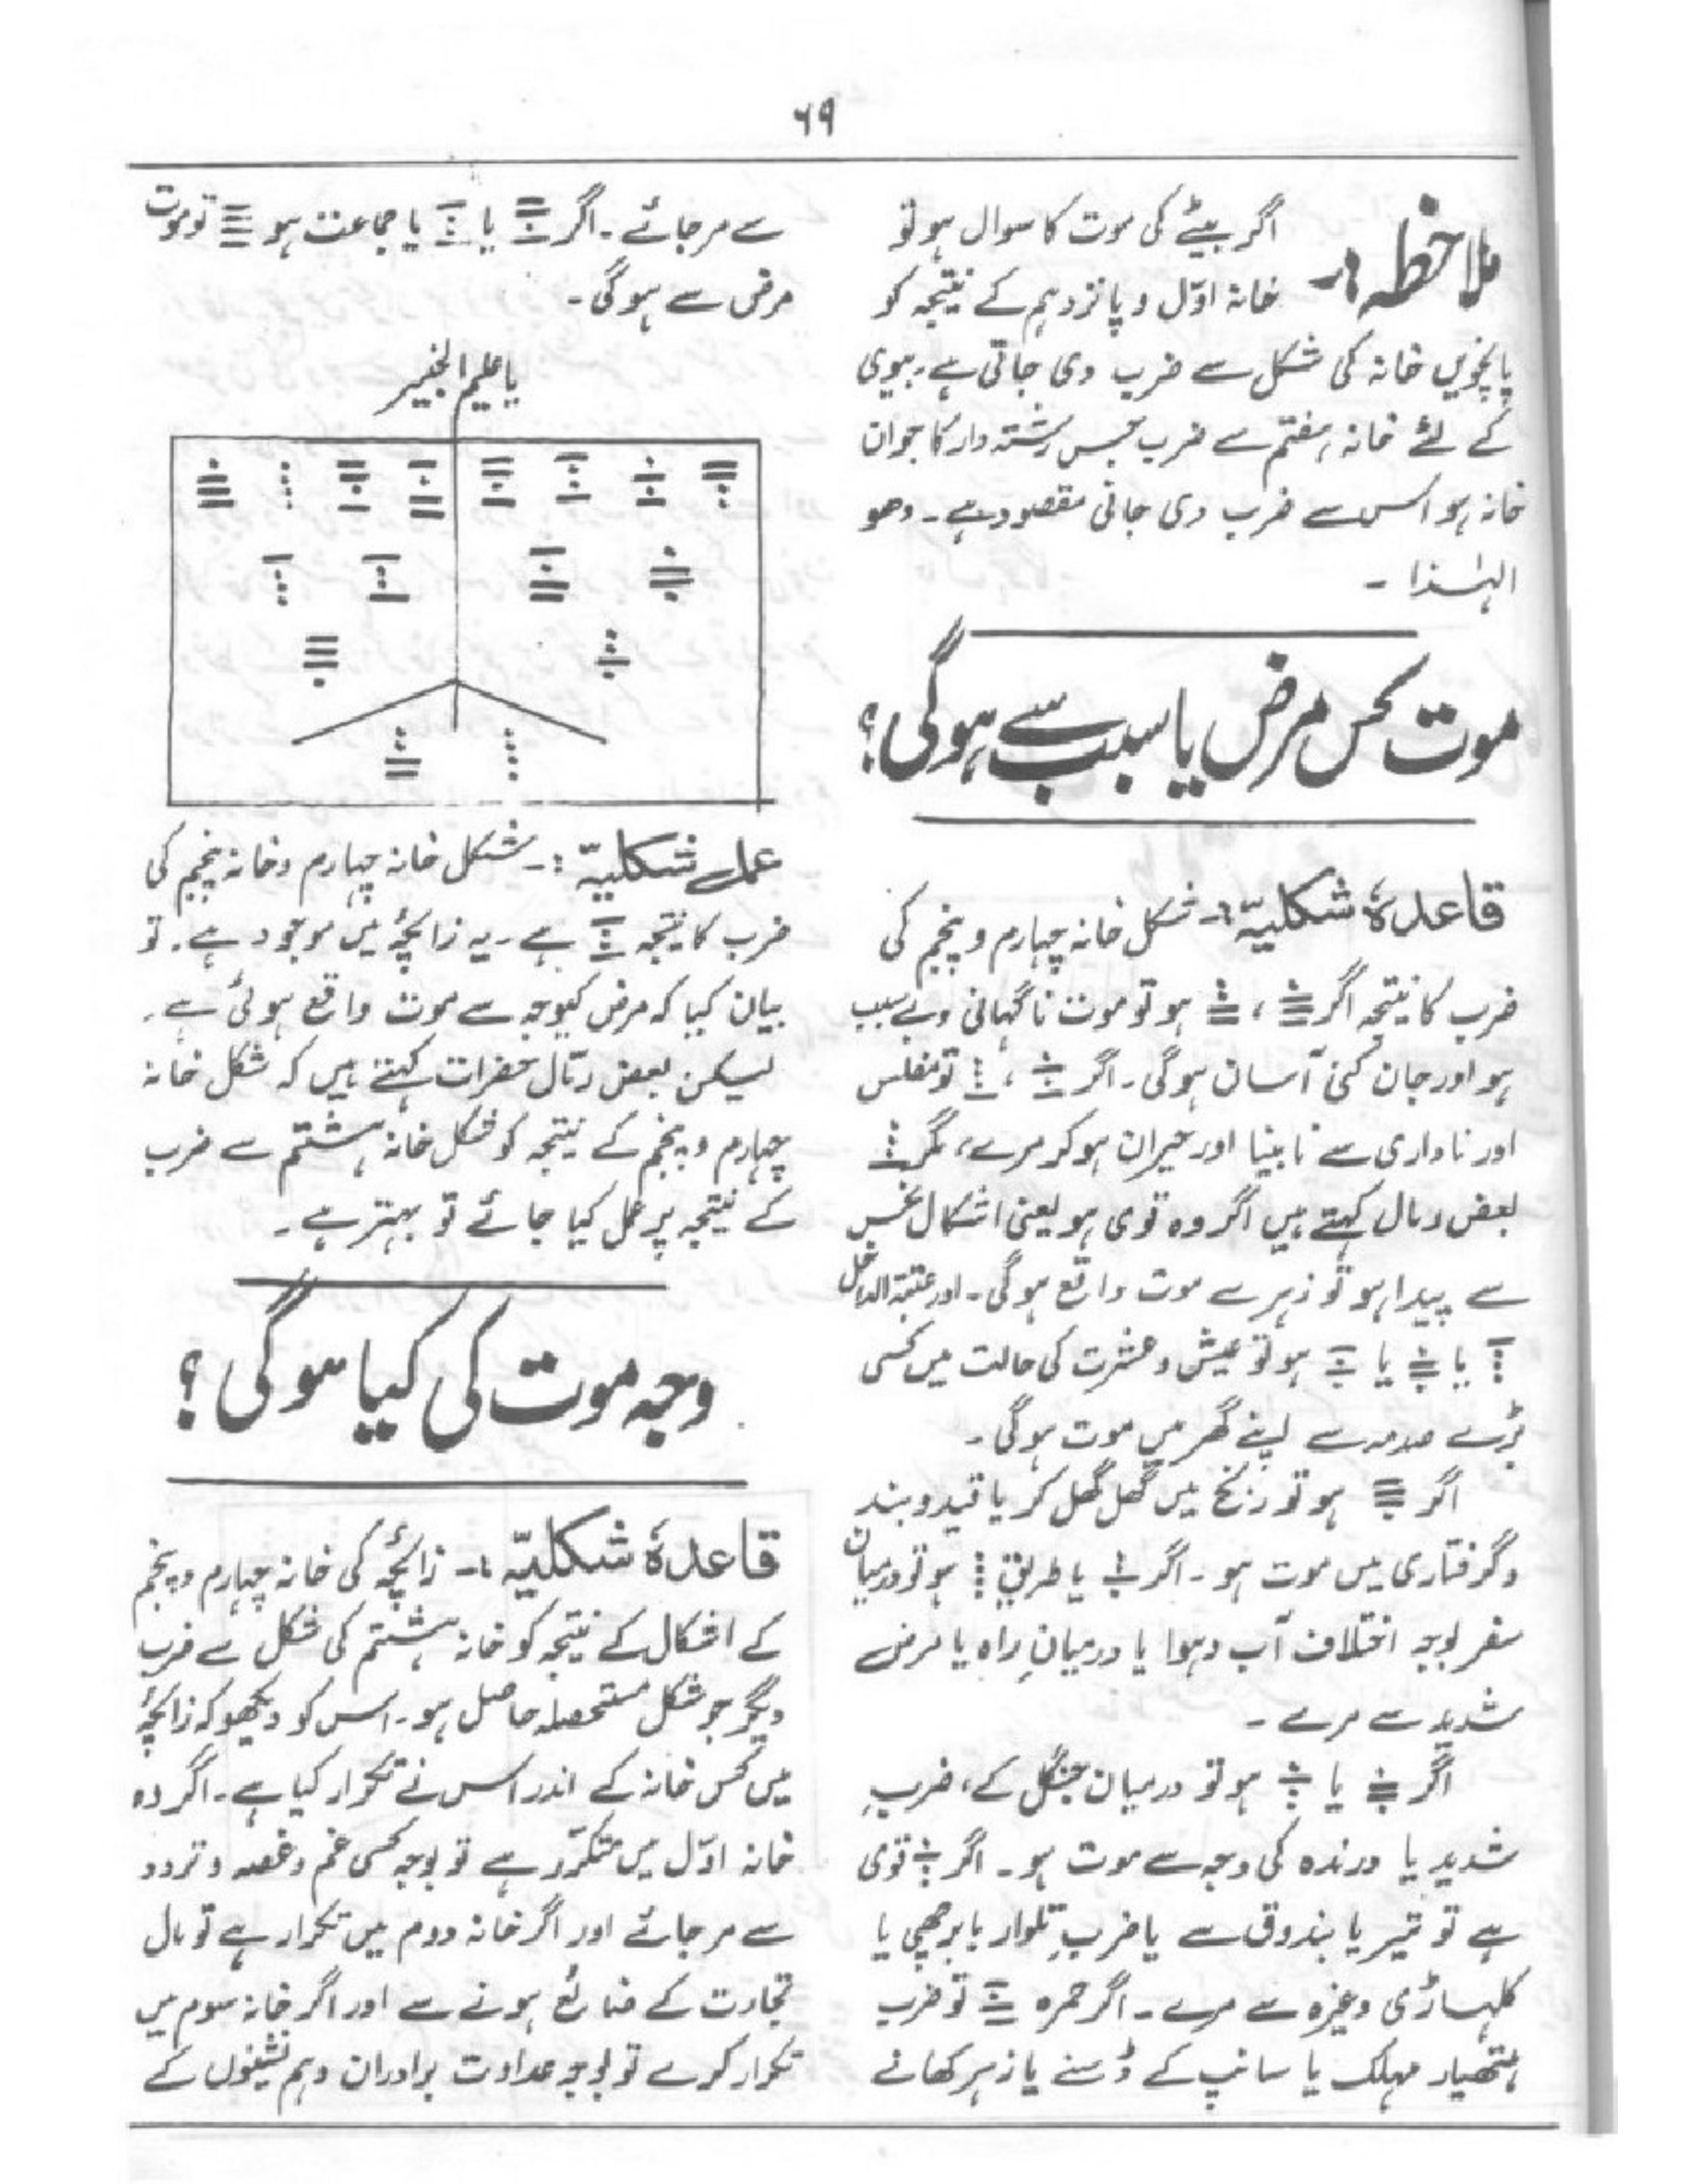 ۶۹
ملاحظہ:۔ اگر بیٹے کی موت کا سوال ہو تو
خانہ اوّل و پانزدہم کے نتیجہ کو
پانچویں خانہ کی شکل سے ضرب دی جاتی ہے۔ بیوی
کے لئے خانہ ہفتم سے ضرب جس رشتہ دار کا جوان
خانہ ہو اس سے ضرب دی جانی مقصود ہے۔ وھو
الہٰذا ۔
موت کس مرض یا سبب سے ہوگی؟
قاعدۂ شکلیہّ:۔ شکل خانہ چہارم و پنجم کی
ضرب کا نتیجہ اگر ، ہو تو موت ناگہانی و بے سبب
ہو اور جان کنی آسان ہوگی۔ اگر ، تو مفلس
اور ناداری سے نابینا اور حیران ہو کر مرے، مگر
بعض رمال کہتے ہیں اگر وہ قوی ہو یعنی اشکال نحس
سے پیدا ہو تو زہر سے موت واقع ہوگی۔ اور عتبۃ الداخل
یا یا ہو تو عیش و عشرت کی حالت میں کسی
بڑے صدمہ سے اپنے گھر میں موت ہوگی۔
اگر ہو تو رنج میں گھل گھل کر یا قید و بند
و گرفتاری میں موت ہو۔ اگر یا طریق ہو تو درمیان
سفر بوجہ اختلاف آب و ہوا یا درمیانِ راہ یا مرض
شدید سے مرے ۔
اگر یا ہو تو درمیان جنگل کے، ضربِ
شدید یا درندہ کی وجہ سے موت ہو۔ اگر قوی
ہے تو تیر یا بندوق سے یا ضربِ تلوار یا برچھی یا
کلہاڑی وغیرہ سے مرے۔ اگر حمرہ تو ضرب
ہتھیار مہلک یا سانپ کے ڈسنے یا زہر کھانے
سے مر جائے۔ اگر یا یا جماعت ہو تو موت
مرض سے ہوگی۔
یا علیم الخبیر
عمل شکلیہّ:۔ شکل خانہ چہارم و خانہ پنجم کی
ضرب کا نتیجہ ہے۔ یہ زائچہ میں موجود ہے۔ تو
بیان کیا کہ مرض کیوجہ سے موت واقع ہوئی ہے۔
لیکن بعض رمّال حضرات کہتے ہیں کہ شکل خانہ
چہارم و پنجم کے نتیجہ کو شکل خانہ ہشتم سے ضرب
کے نتیجہ پر عمل کیا جائے تو بہتر ہے۔
وجہ موت کی کیا ہوگی ؟
قاعدۂ شکلیہّ:۔ زائچہ کی خانہ چہارم و پنجم
کے اشکال کے نتیجہ کو خانہ ہشتم کی شکل سے ضرب
دیگر جو شکل مستحصلہ حاصل ہو۔ اس کو دیکھو کہ زائچہ
میں کس خانہ کے اندر اس نے تکرار کیا ہے۔ اگر وہ
خانہ اوّل میں متکرّر ہے تو بوجہ کسی غم و غصہ و تردد
سے مر جائے اور اگر خانہ دوم میں تکرار ہے تو مال
تجارت کے ضائع ہونے سے اور اگر خانہ سوم میں
تکرار کرے تو بوجہ عداوت برادران و ہم نشینوں کے